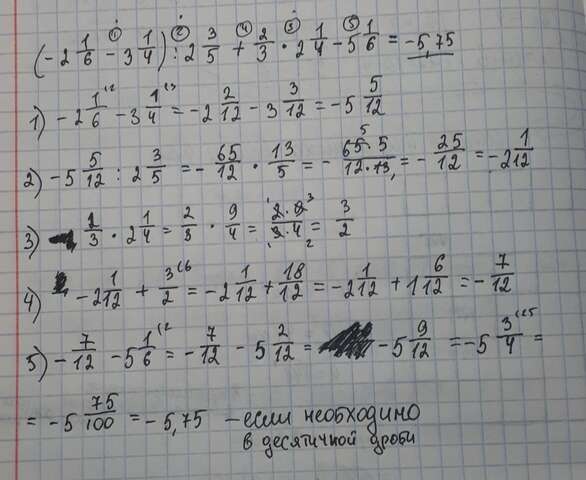 ① ② ④ ③ ⑤
(-2 1/6 - 3 1/4) : 2 3/5 + 2/3 · 2 1/4 - 5 1/6 = -5,75
1) -2 1/6 (2 - 3 1/4 (3 = -2 2/12 - 3 3/12 = -5 5/12
2) -5 5/12 : 2 3/5 = - 65/12 · 13/5 = - 65 · 5/12 · 13 = - 25/12 = -2 1/12
3) 2/3 · 2 1/4 = 2/3 · 9/4 = 2 · 9/3 · 4 = 3/2
4) -2 1/12 + 3/2 (6 = -2 1/12 + 18/12 = -2 1/12 + 1 6/12 = - 7/12
5) - 7/12 - 5 1/6 (2 = - 7/12 - 5 2/12 = - 5 9/12 = -5 3/4 (25 =
= -5 75/100 = -5,75 – если необходимо
в десятичной дроби